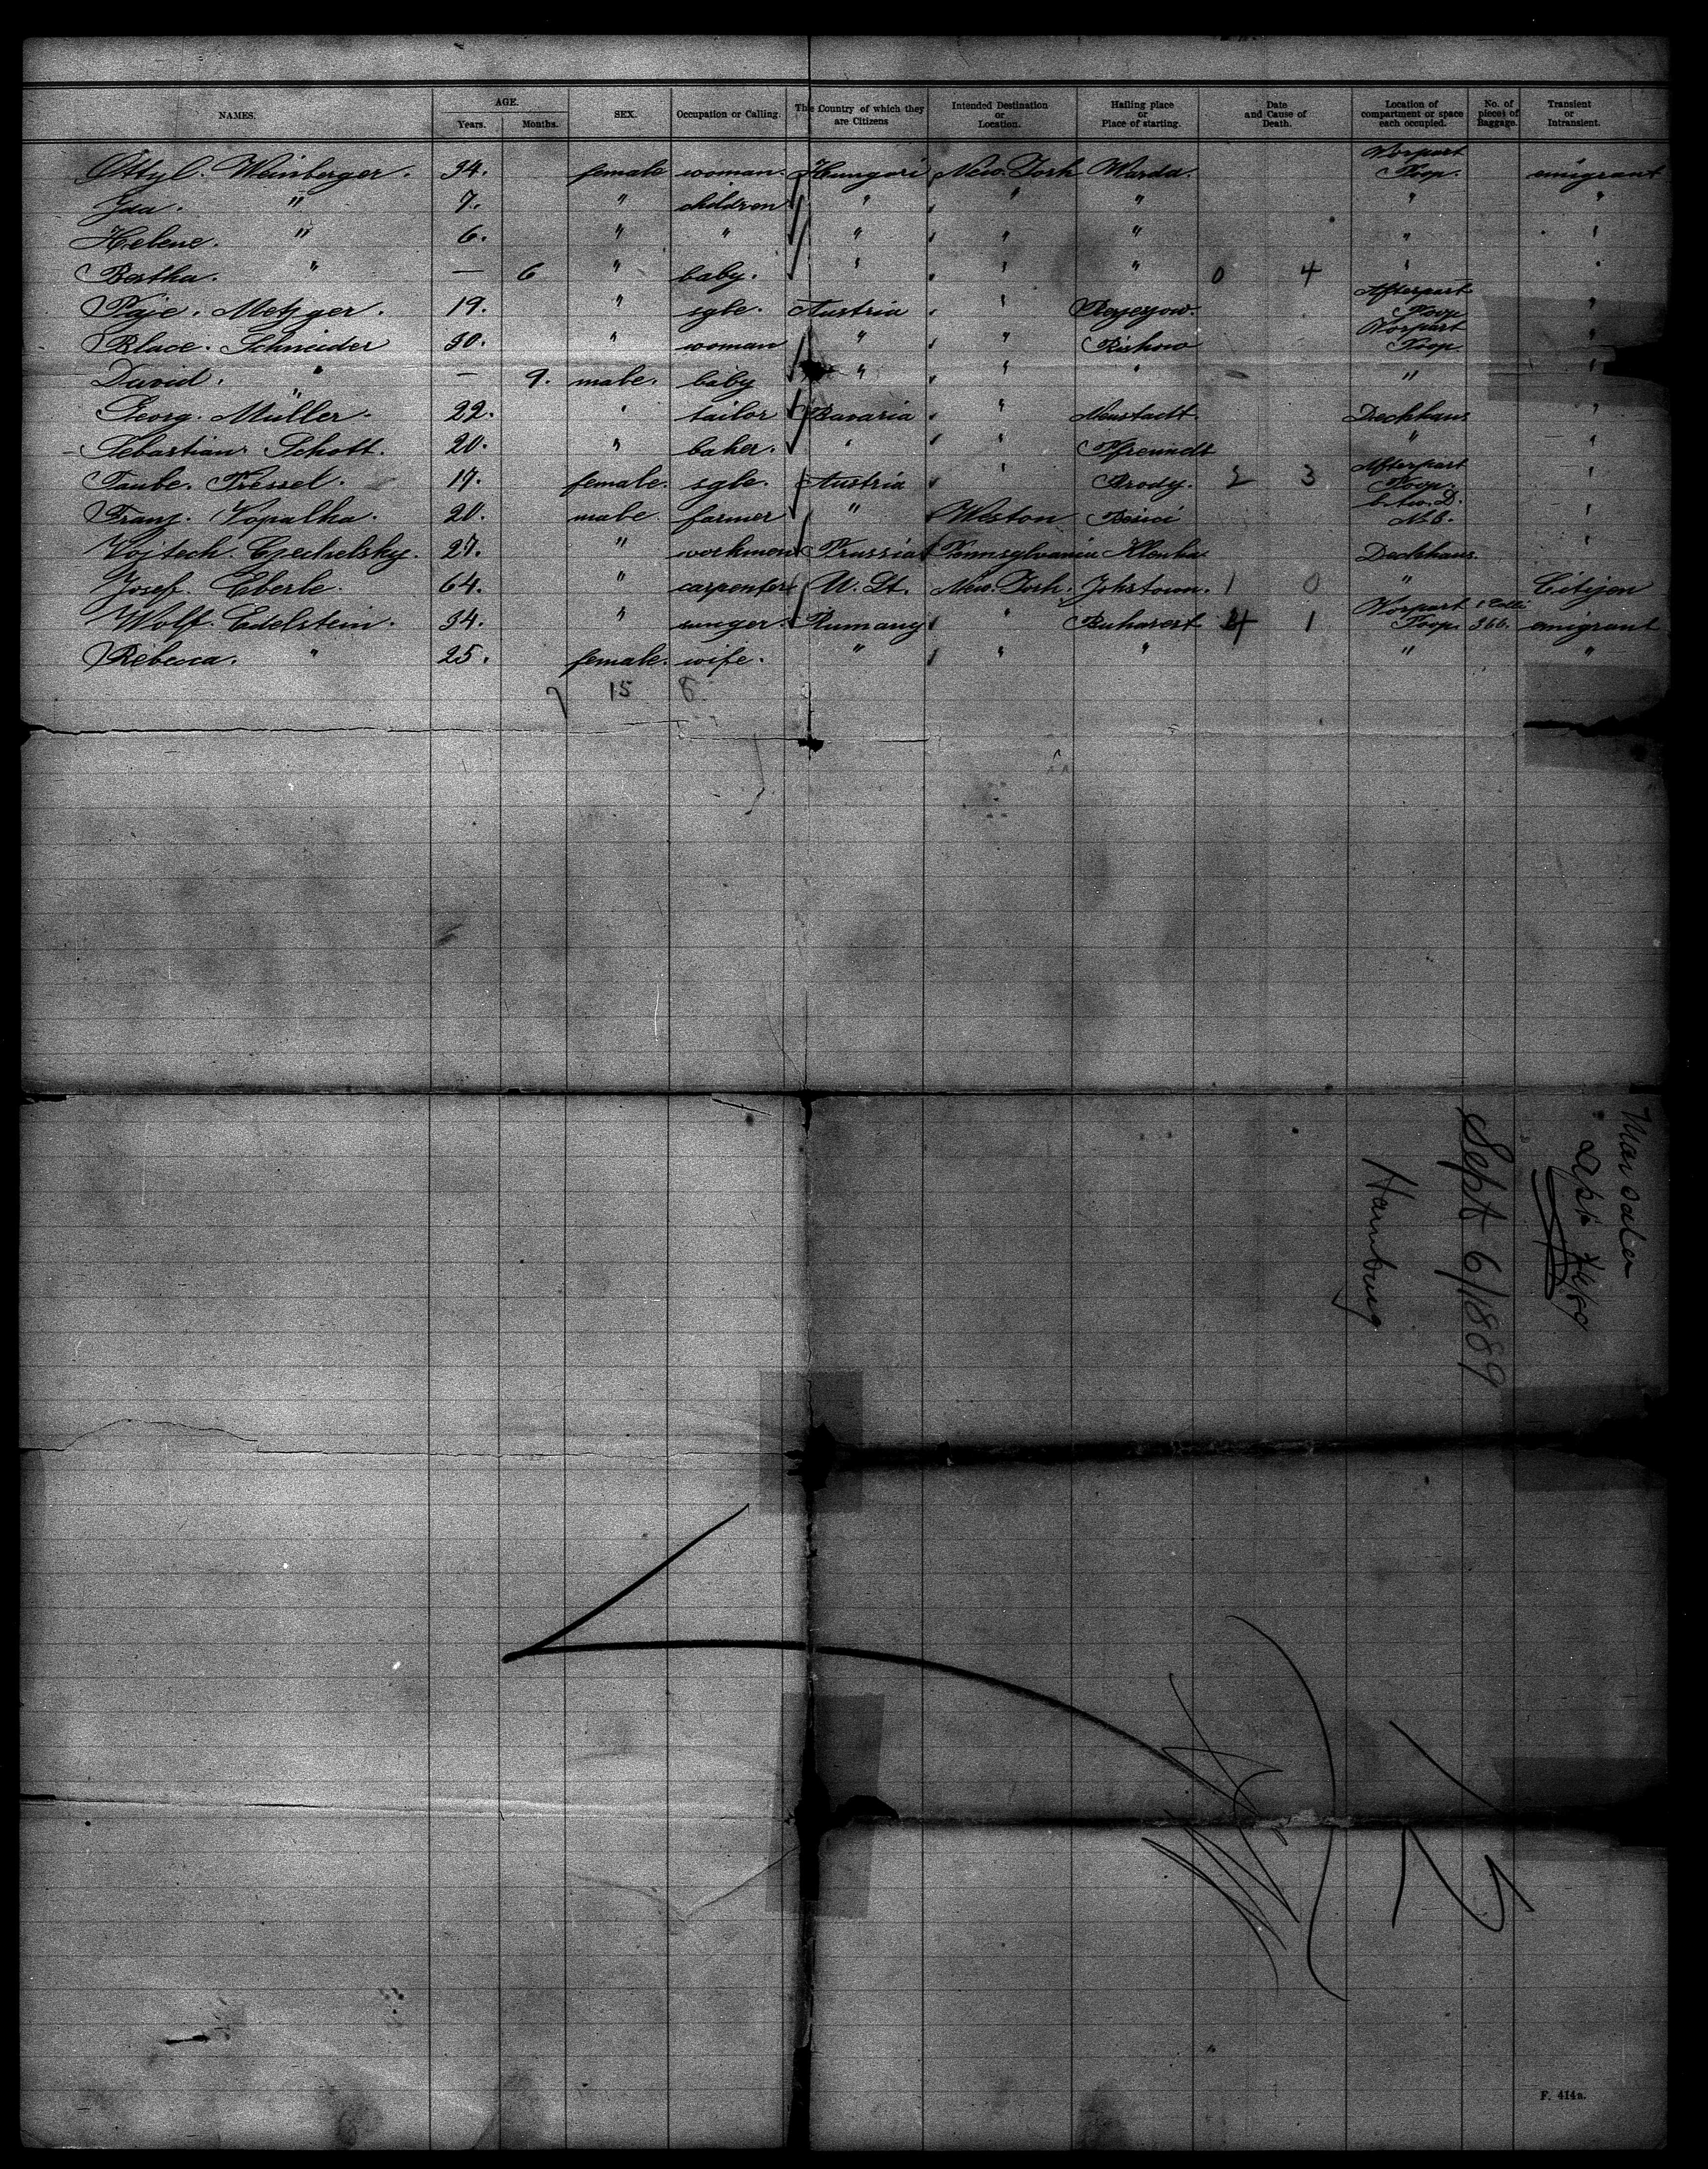 NAMES. AGE. Years. Months. SEX. Occupation or Calling. The Country of which they are Citizens Intended Destination or Location. Hailing place or Place of starting. Date and Cause of Death. Location of compartment or space each occupied. No. of pieces of Baggage. Transient or Intransient.
Ottyl. Weinberger. 34. female woman. Hungari New-York Warda. Vorpart Poop. emigrant
Ida. " 7. " children " " " " "
Helene. " 6. " " " " " " "
Bertha. " — 6 " baby. " " " 0 4 " "
Metzger. 19. " sgle. Austria " Afterpart Poop "
Schneider 30. " woman " " Rishow Vorpart Poop. "
David. " — 9. male. baby " " " " "
Georg. Müller. 22. " tailor Bavaria " Neustadt. Deckhaus "
Sebastian Schott. 20. " baker. " " Pfreimdt " "
Taube. Pressel. 17. female. sgle. Austria " Brody. 2 3 Afterpart Poop. "
Franz. Kopalka. 20. male. farmer " Weston "
Vojtech Czechelsky. 27. " workmen Prussia Pennsylvania Deckhaus. "
Josef. Eberle. 64. " carpenter U. St. New-York. Johstown. 1 0 " Citizen
Wolf. Edelstein. 34. " Rumany " Bukarest 4 1 Vorpart Poop. 1 Colli 366. emigrant
Rebecca. " 25. female. wife. " " " " "
15 8.
Sept 6/1889
Hamburg
F. 414a.